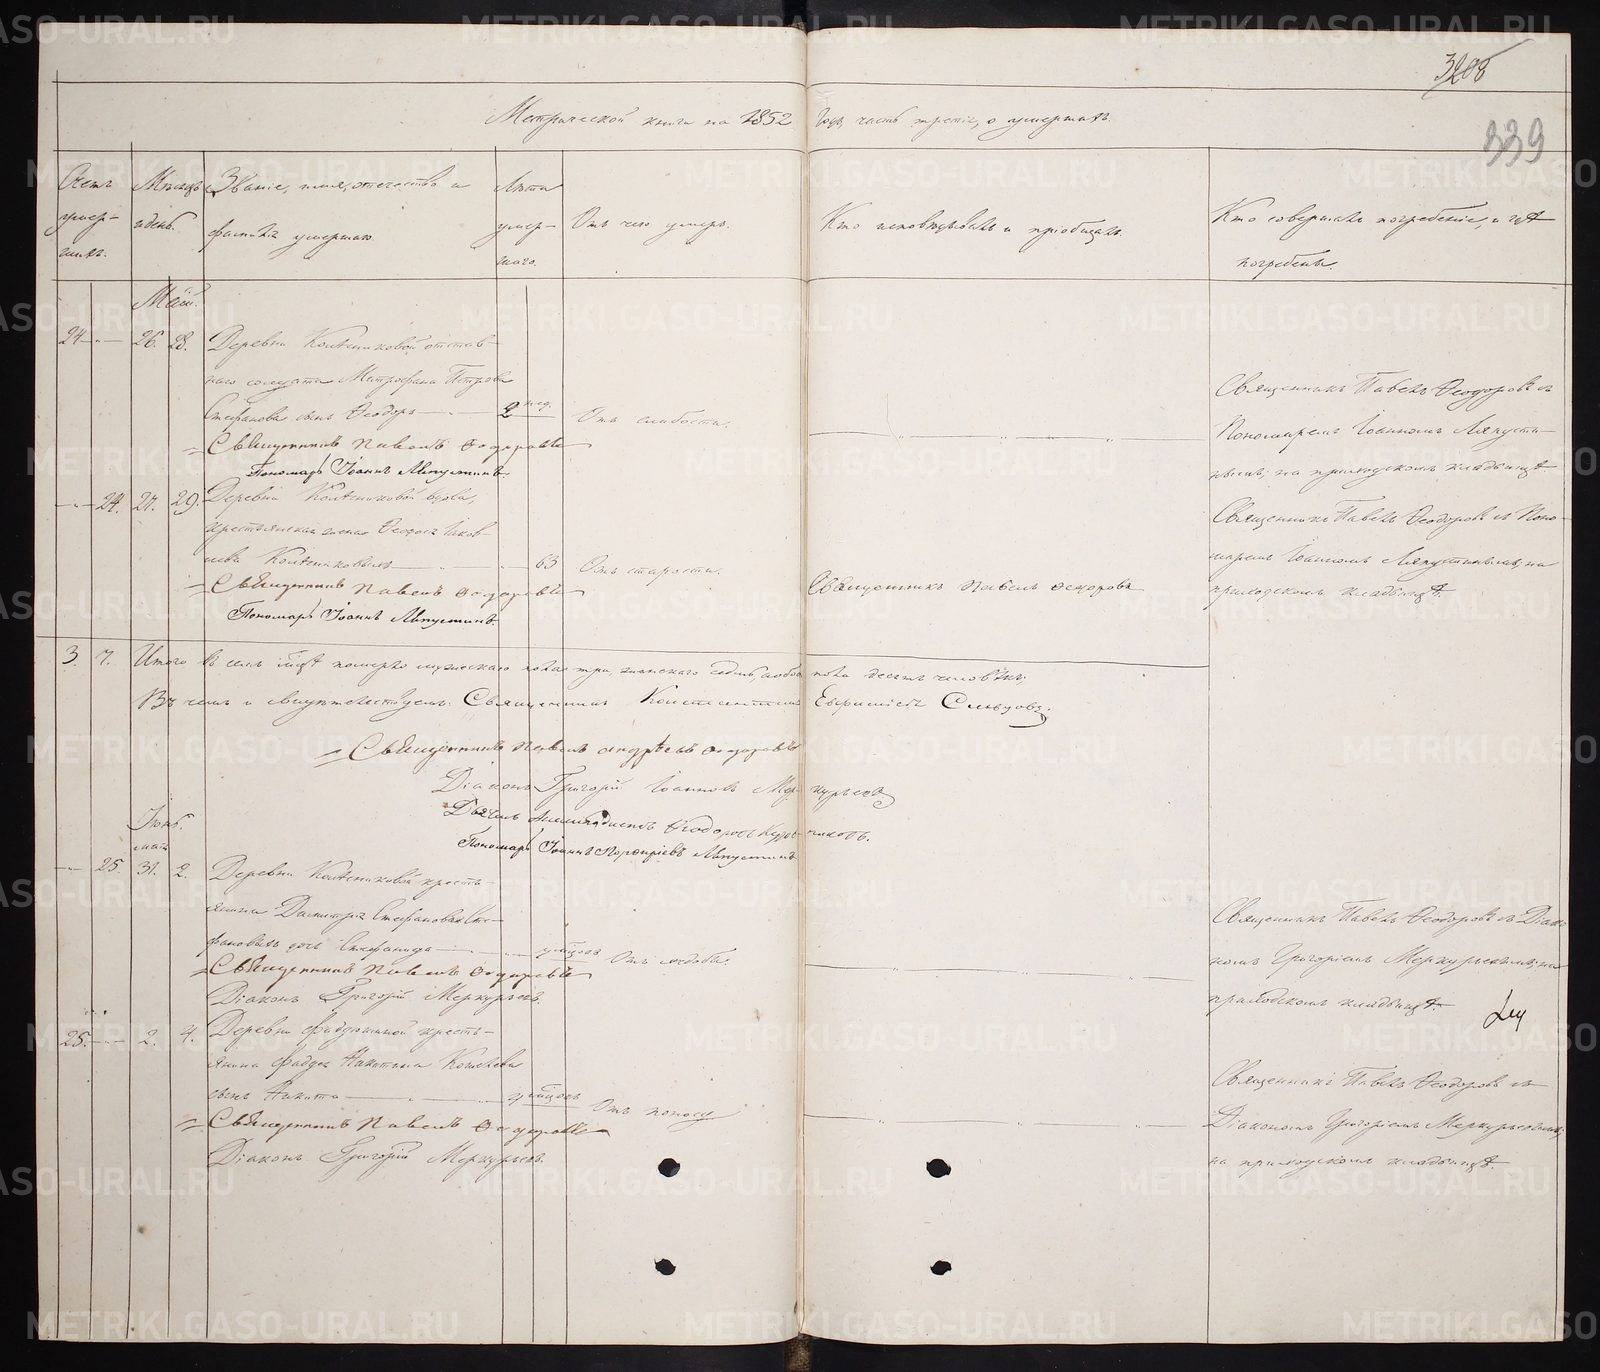 3208
339
Метрической книги на 1852 годъ, часть третія, о умершихъ.
Счетъ умер-шихъ.
Мѣсяцъ и день.
Званіе, имя, отчество и фамилія умершаго.
Лѣта умер-шаго.
Отъ чего умеръ.
Кто исповѣдывалъ и пріобщалъ.
Кто совершалъ погребеніе, и гдѣ погребены.
Май.
24 — 26. 28. Деревни Колѣсниковой отстав-
наго солдата Митрофана Петрова
Стефанова сынъ Ѳеодоръ — 2 нед. Отъ слабости.
Священникъ Павелъ Ѳеодоровъ
Пономарь Іоаннъ Ляпустинъ.
Священникъ Павелъ Ѳеодоровъ съ
Пономаремъ Іоанномъ Ляпусти-
нымъ, на приходскомъ кладбищѣ
— 24. 27. 29. Деревни Колѣсниковой вдова,
крестьянская жена Иаков-
лева Колѣсникова — 63 Отъ старости.
Священникъ Павелъ Ѳеодоровъ
Пономарь Іоаннъ Ляпустинъ.
Священникъ Павелъ Ѳеодоровъ
Священникъ Павелъ Ѳеодоровъ съ Поно-
маремъ Іоанномъ Ляпустинымъ, на
приходскомъ кладбищѣ.
3. 7. Итого въ семъ мцѣ померло мужескаго пола три, женскаго седмь, обоего пола десять человѣкъ;
Въ чемъ и свидѣтельствуемъ: Священникъ Константинъ Евфиміевъ
Священникъ Павелъ Андреевъ Ѳеодоровъ
Діаконъ Григорій Іоанновъ Меркурьевъ
Дьячекъ Ѳеодоровъ
Пономарь Іоаннъ Порфиріевъ Ляпустинъ
Іюнь.
май
— 25. 31. 2. Деревни Колѣсниковой кресть-
янина Димитрія Стефанова Сте-
фановыхъ дочь Стефанида — мцовъ Отъ худобы.
Священникъ Павелъ Ѳеодоровъ
Діаконъ Григорій Меркурьевъ.
Священникъ Павелъ Ѳеодоровъ съ Діако-
номъ Григоріемъ Меркурьевымъ, на
приходскомъ кладбищѣ.
25. — 2. 4. Деревни Фадюшиной кресть-
янина Фаддея Никитина Кошелева
сынъ Никита — мцовъ Отъ поносу
Священникъ Павелъ Ѳеодоровъ
Діаконъ Григорій Меркурьевъ.
Священникъ Павелъ Ѳеодоровъ съ
Діакономъ Григоріемъ Меркурьевымъ,
на приходскомъ кладбищѣ.
METRIKI.GASO-URAL.RU